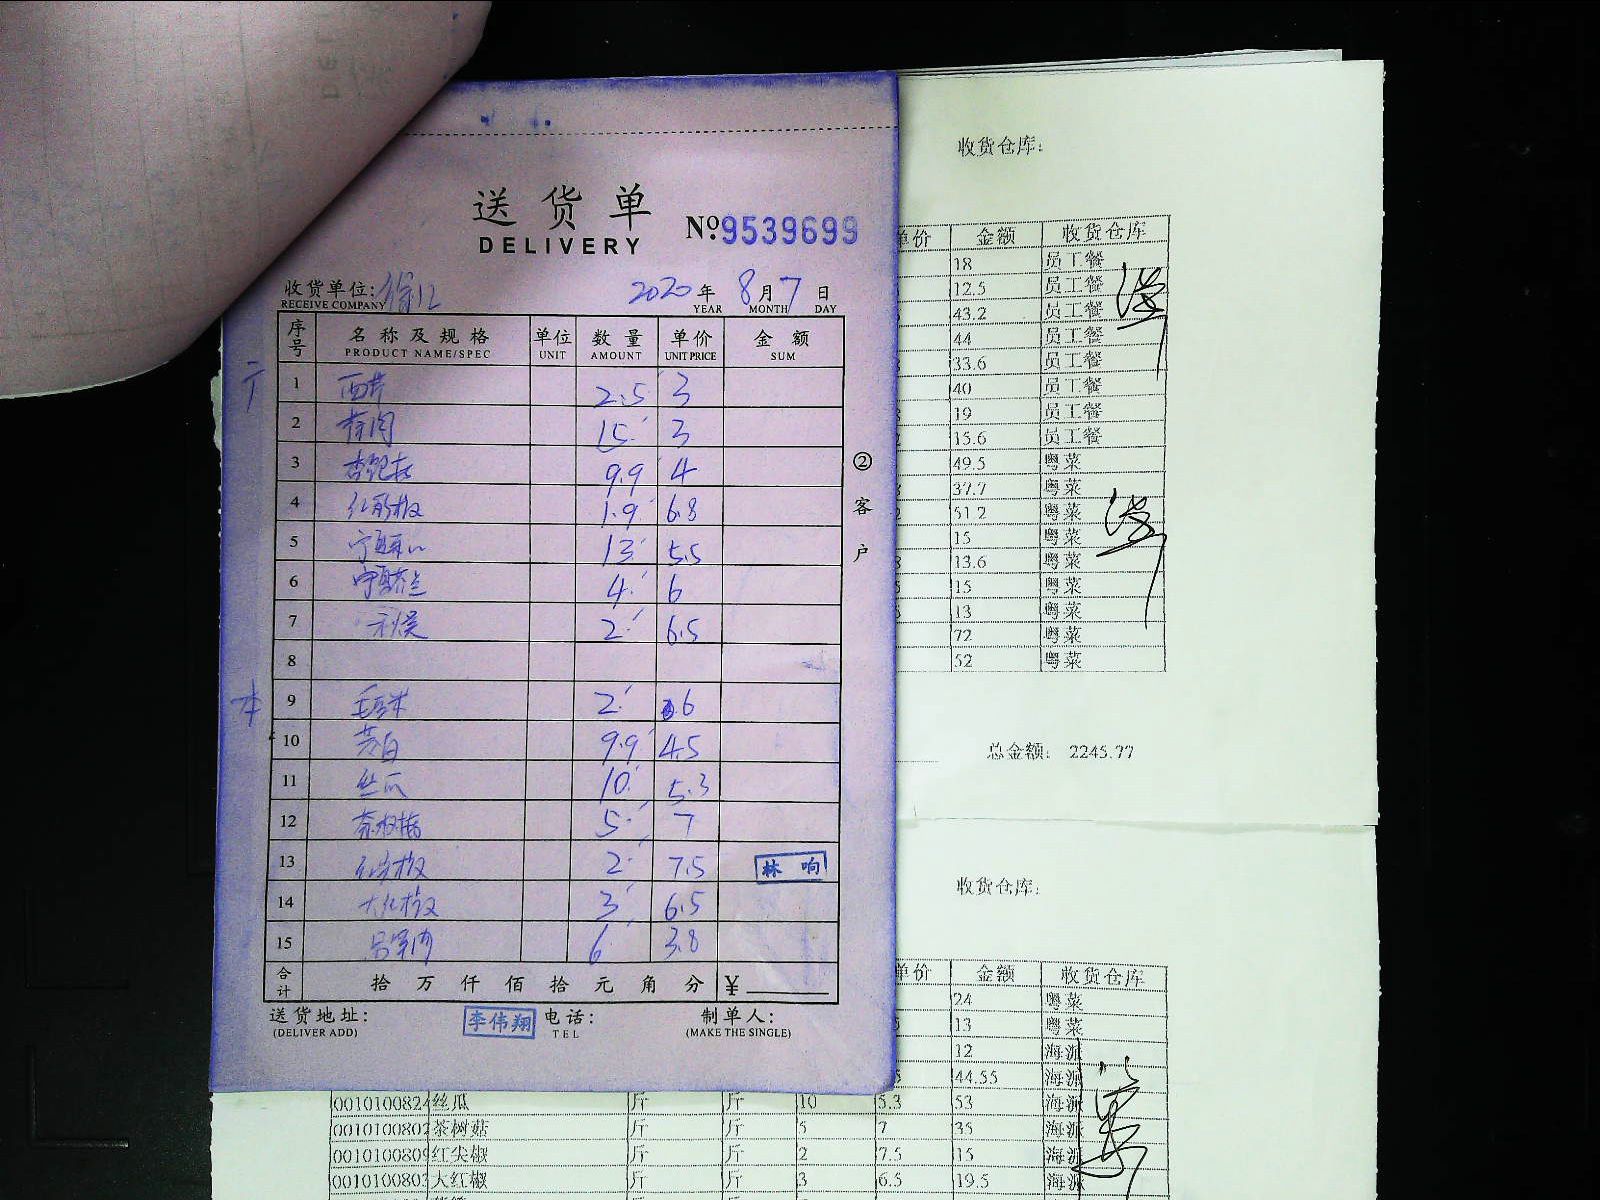 送货单
DELIVERY
№:9539699
收货单位:徐汇
RECEIVE COMPANY
2020年8月7日
YEAR MONTH DAY
序号 名称及规格 单位 数量 单价 金额
PRODUCT NAME/SPEC UNIT AMOUNT UNIT PRICE SUM
1 西芹 2.5 3
2 15 3
3 杏鲍菇 9.9 4
4 1.9 6.8
5 13 5.5
6 宁夏芥兰 4 6
7 2 6.5
8
9 毛豆米 2 6
10 茭白 9.9 4.5
11 丝瓜 10 5.3
12 茶树菇 5 7
13 红尖椒 2 7.5
林响
14 大红椒 3 6.5
15 6 3.8
合计 拾万仟佰拾元角分 ¥
送货地址: 李伟翔 电话: 制单人:
(DELIVER ADD) TEL (MAKE THE SINGLE)
②客户
收货仓库:
单价 金额 收货仓库
18 员工餐
12.5 员工餐
43.2 员工餐
44 员工餐
33.6 员工餐
40 员工餐
19 员工餐
15.6 员工餐
49.5 粤菜
37.7 粤菜
51.2 粤菜
15 粤菜
13.6 粤菜
15 粤菜
13 粤菜
72 粤菜
52 粤菜
总金额: 2245.77
收货仓库:
单价 金额 收货仓库
24 粤菜
13 粤菜
12 海派
44.55 海派
0010100824 丝瓜 斤 斤 10 5.3 53 海派
0010100802 茶树菇 斤 斤 5 7 35 海派
0010100809 红尖椒 斤 斤 2 7.5 15 海派
0010100803 大红椒 斤 斤 3 6.5 19.5 海派